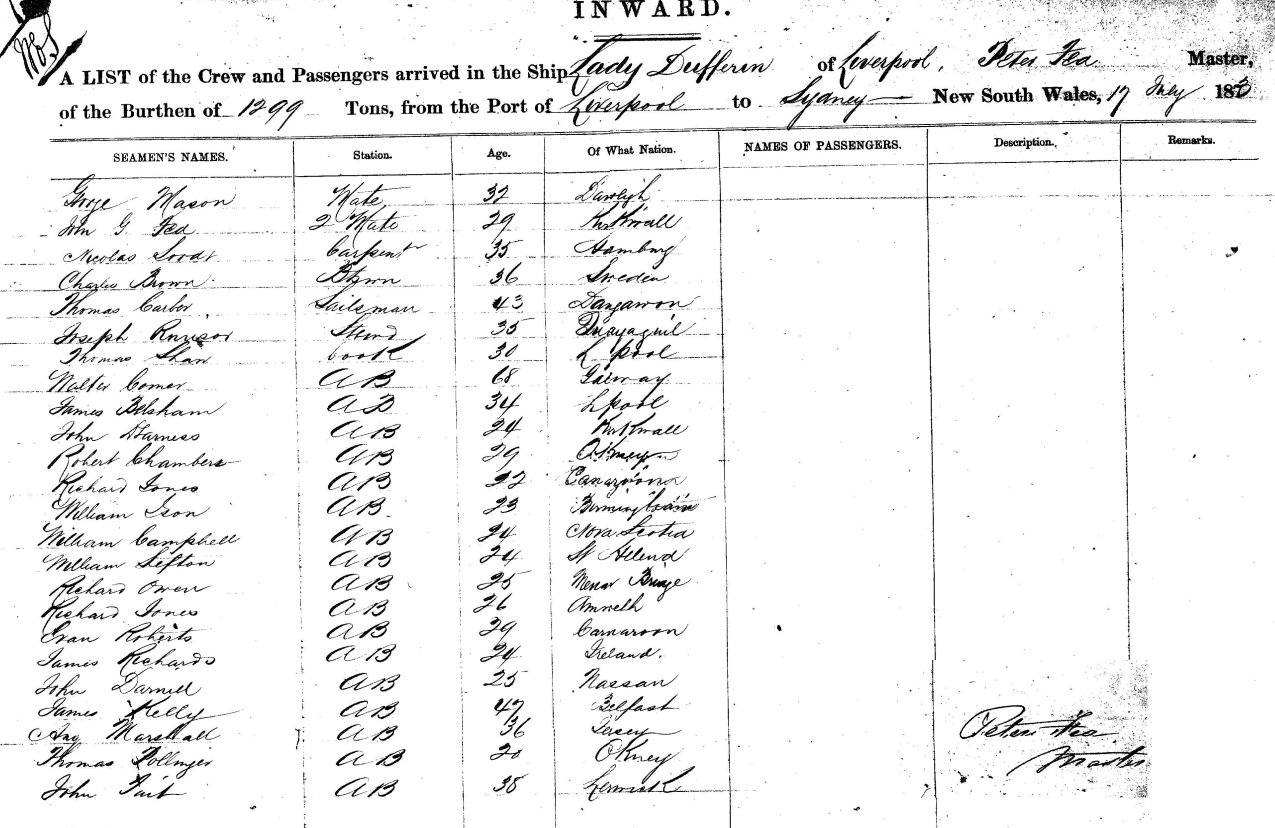 INWARD.
A LIST of the Crew and Passengers arrived in the Ship Lady Dufferin of Liverpool, Peter Fea Master,
of the Burthen of 1299 Tons, from the Port of Liverpool to Sydney New South Wales, 17 July 188
SEAMEN'S NAMES. Station. Age. Of What Nation. NAMES OF PASSENGERS. Description. Remarks.
George Mason Mate 32
John G. Fea 2 Mate 29 Kirkwall
Nicolas 35 Hamburg
Charles Brown 36 Sweden
Thomas 43
Joseph 35
Thomas Shaw Cook 30 L pool
Walter Comer AB 68 Galway
James Belsham AB 34 L pool
John Harness AB 24 Kirkwall
Robert Chambers AB 29 Okney
Richard Jones AB 22
William Ison AB 23 Birmingham
William Campbell AB 24 Nova Scotia
William Sefton AB 24 St
Richard Owen AB 25
Richard Jones AB 26
Evan Roberts AB 29
James Richards AB 24 Ireland.
John AB 25 Nassau
James Kelly AB 47 Belfast
Marshall AB 36 Jersey Peter Fea
Thomas AB 20 Okney Master
John AB 38 Lerwick